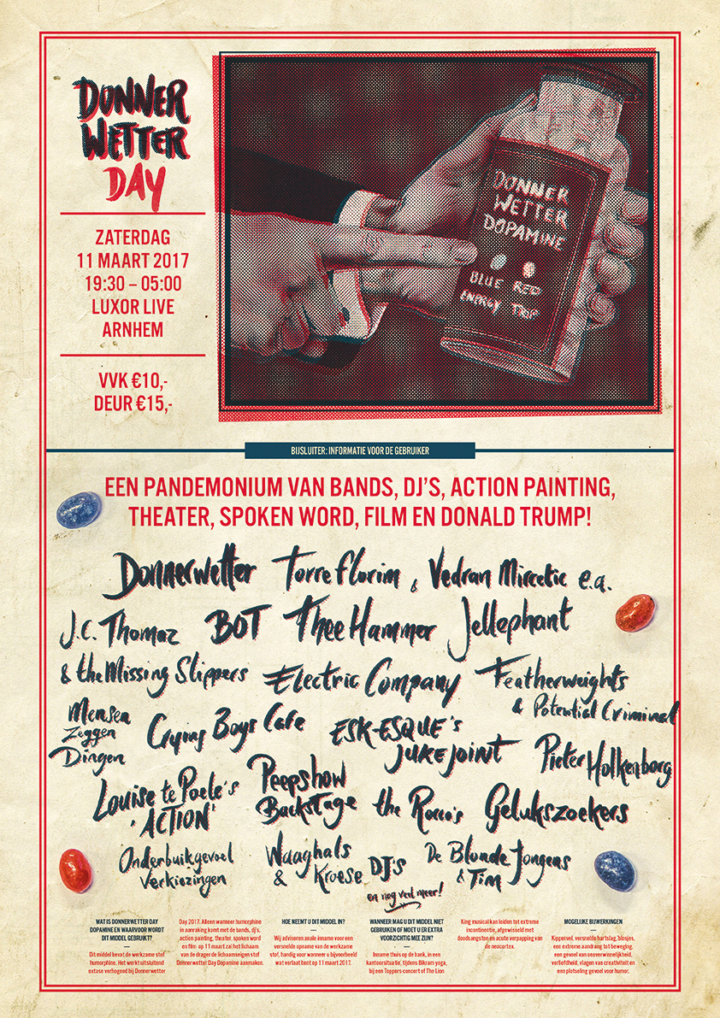 DONNER
WETTER
DAY
ZATERDAG
11 MAART 2017
19:30 – 05:00
LUXOR LIVE
ARNHEM
VVK €10,-
DEUR €15,-
DONNER
WETTER
DOPAMINE
BLUE RED
ENERGY TRIP
BIJSLUITER: INFORMATIE VOOR DE GEBRUIKER
EEN PANDEMONIUM VAN BANDS, DJ'S, ACTION PAINTING,
THEATER, SPOKEN WORD, FILM EN DONALD TRUMP!
Donnerwetter Torre Florim, Vedran Mircetic e.a.
J.C. Thomaz BOT Thee Hammer Jellephant
& the Missing Slippers Electric Company Featherweights
& Potential Criminal
Mensen
Zeggen
Dingen
Crying Boys Cafe
ESK-ESQUE's
JUKE JOINT
Pieter Holkenborg
Louise te Poele's
'ACTION'
Peepshow
Backstage
the Rocco's
Gelukszoekers
Onderbuikgevoel
Verkiezingen
Waaghals
& Kroese DJ's
De Blonde Jongens
& Tim
en nog veel meer!
WAT IS DONNERWETTER DAY
DOPAMINE EN WAARVOOR WORDT
DIT MIDDEL GEBRUIKT?
Dit middel bevat de werkzame stof
humorphine. Het werkt uitsluitend
extase verhogend bij Donnerwetter
Day 2017. Alleen wanneer humorphine
in aanraking komt met de bands, dj's,
action painting, theater, spoken word
en film op 11 maart zal het lichaam
van de drager de lichaamseigen stof
Donnerwetter Day Dopamine aanmaken.
HOE NEEMT U DIT MIDDEL IN?
Wij adviseren anale inname voor een
versnelde opname van de werkzame
stof, handig voor wanneer u bijvoorbeeld
wat verlaat bent op 11 maart 2017.
WANNEER MAG U DIT MIDDEL NIET
GEBRUIKEN OF MOET U ER EXTRA
VOORZICHTIG MEE ZIJN?
Inname thuis op de bank, in een
kantoorsituatie, tijdens Bikram yoga,
bij een Toppers concert of The Lion
King musical kan leiden tot extreme
incontinentie, afgewisseld met
doodsangsten en acute verpapping van
de neocortex.
MOGELIJKE BIJWERKINGEN
Kippenvel, versnelde hartslag, blosjes,
een extreme aandrang tot beweging,
een gevoel van onoverwinnelijkheid,
verliefdheid, vlagen van creativiteit en
een plotseling gevoel voor humor.